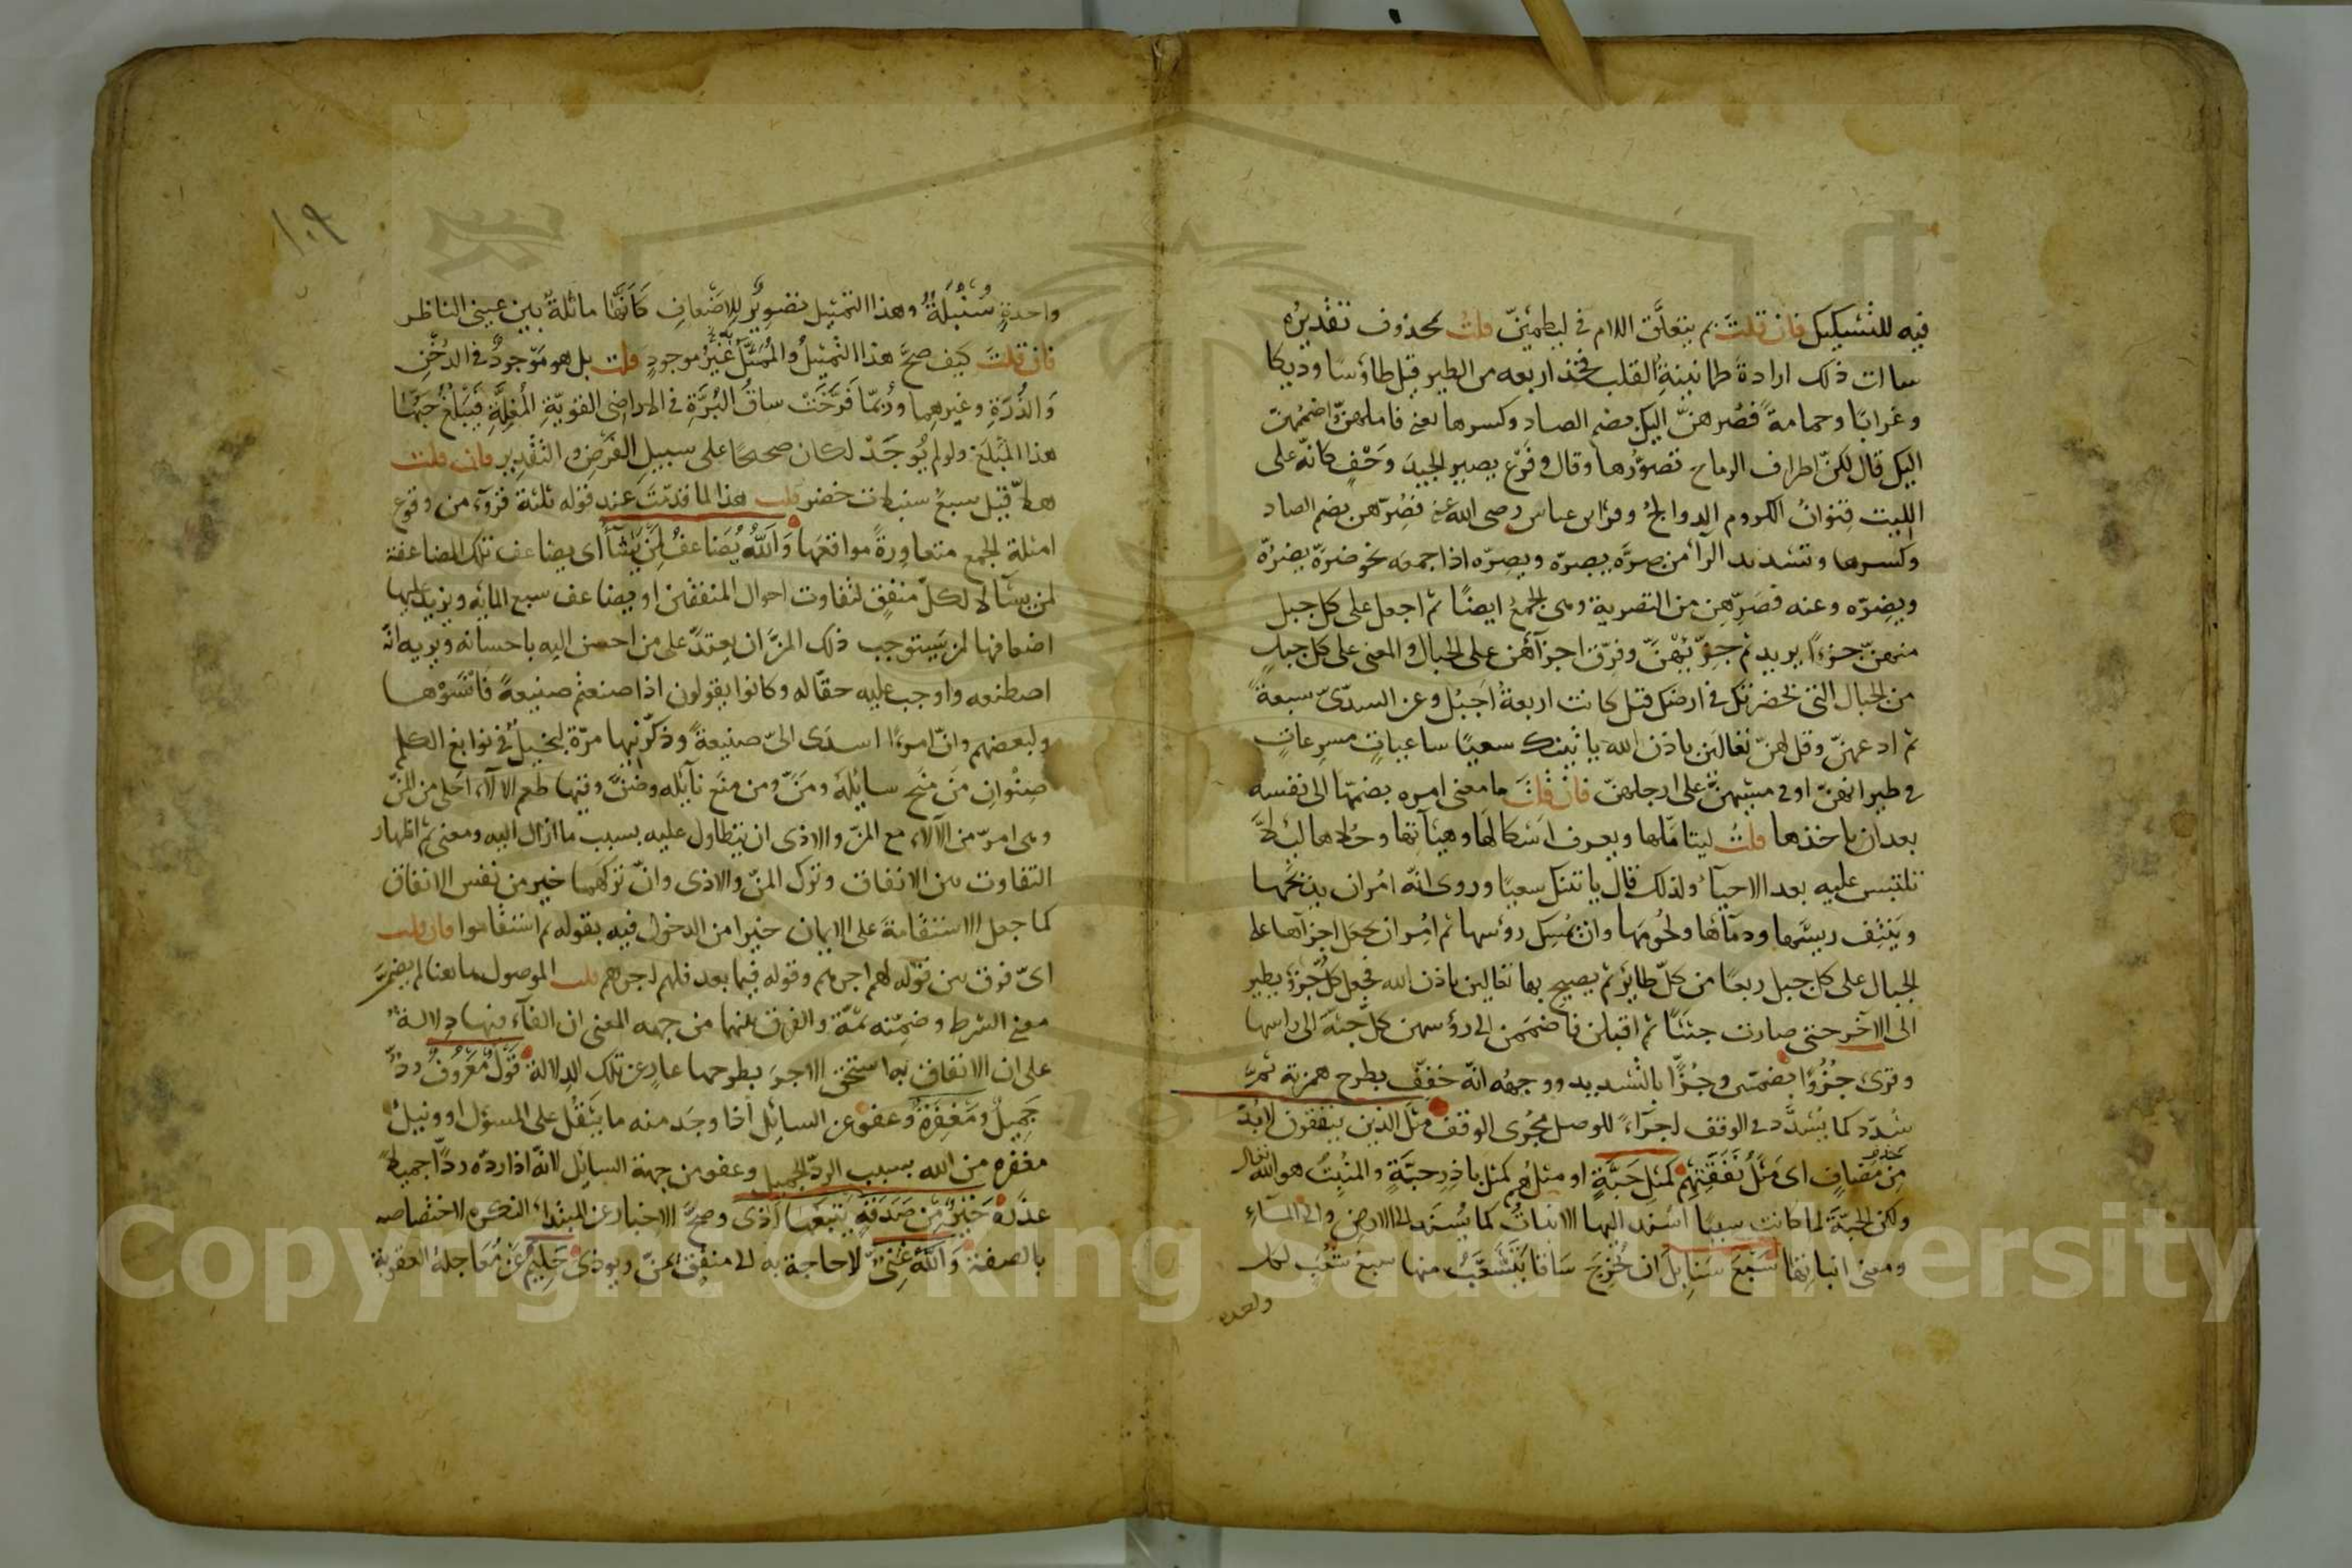 فيه للتشكيك فان قلتَ بم يتعلَّق اللام في ليطمئنّ قلتُ بمحذوف تقديرُه
سالت ذلك ارادةَ طمانينةِ القلب فخذ اربعه من الطير قيل طاؤسًا وديكا
وغرابًا وحمامةً فصُرهنّ اليك بضم الصاد وكسرها بمعنى فاملهنّ واضممهنّ
اليك قال لكنّ اطراف الرماح تصوّرُها وقال وفَرْع يصير الجيدَ وَحْفٍ كانّه على
الليت قنوانُ الكروم الدوالحُ وقرا ابن عباس رضى الله عنه فصُرّهن بضم الصاد
وكسرها وتشديد الرآء من صرَّه يصرّه ويصِرّه اذا جمعه نحو ضرَّه يضرّه
ويضِرّه وعنه فصَرِّهن من التصرية وهى الجمعُ ايضًا ثم اجعل على كل جبل
منهنّ جزءًا يريد ثم جزّئهنّ وفرّق اجزآءهن على الجبال والمعنى على كل جبلٍ
من الجبال التى بحضرتك فى ارضك قيل كانت اربعةَ اَجبُل وعن السدّىّ سبعةً
ثم ادعهنّ وقل لهنّ تعالَين باذن الله ياتينك سعيًا ساعياتٍ مسرعاتٍ
فى طيرانهنّ او فى مشيهنّ على ارجلهنّ فان قلتَ ما معنى امره بضمّها الى نفسه
بعد ان ياخذها قلتُ ليتامّلها ويعرف اشكالها وهيئاتها وحُلاها لئلّا
تلتبس عليه بعد الاحيآء ولذلك قال ياتينك سعيًا وروى انّه اُمر ان يذبحَها
ويَنْتِف ريشَها ودمآءَها ولحُومَها وان يُمسِك رؤسها ثم اُمِر ان يجعل اجزآءها على
الجبال على كل جبل ربعًا من كلّ طائر ثم يصيح بها تعالين باذن الله فجعل كلّ جزؤ يطير
الى الآخر حتى صارت جثثًا ثم اقبلن فانضممن الى رؤسهن كلّ جثّة الى راسها
وقرى جُزُؤًا بضمتين وجُزًّا بالتشديد ووجهُه انّه خفّف بطرح همزته ثمّ
شدّد كما يُشدَّد فى الوقف اجرآءً للوصل مُجرى الوقف مثل الذين ينفقون لا بُدّ
من حذف مضافٍ اى مَثَلُ نَفقَتِهم كَمَثَلِ حَبَّةٍ او مثلُهم كمثل باذِرِ حبّةٍ والمنبِتُ هو الله تعالى
ولكن الحبّةَ لما كانت سببًا اُسند اليها الانباتُ كما يُسنَد الى الارضِ والى المآءِ
ومعنى انباتِها سَبْعَ سَنابِلَ ان تُخْرِجَ سَاقا يَتَشَعَّبُ منها سبع شُعَبٍ لكل
واحده
١٠٩
واحدةٍ سُنْبُلَةٌ وهذا التمثيل تصوِيْرٌ للاِضعافِ كَاَنَّهَا ماثلةٌ بين عينى الناظر
فان قلتَ كيف صحَّ هذا التمثيلُ والمُمَثَّلُ غَيْرُ موجودٍ قلت بل هو مَوْجودٌ فى الدُخْنِ
وَالذُرَةِ وغيرهِما وربمّا فَرَّخَتْ ساقُ البُرَّةِ فى الاراضى القويّةِ المُغِلَّةِ فيَبْلُغُ حَبُّهَا
هذا المَبْلَغَ ولو لم يُوجَدْ لكان صحيحًا على سبيلِ الفَرْضِ والتقْدِيرِ فان قلت
هلّا قيل سبعُ سنبلات خضر قلت هذا لما قدّمتُ عند قوله ثلثةَ قروٓء من وقوع
امثلة الجمع متعاوِرةً مواقعَها وَاللهُ يُضَاعفُ لِمَنْ يَّشَآءُ اى يضاعف تلك المضاعفة
لمن يشآء لا لكلّ منفِقٍ لتفاوت احوال المنفقين او يضاعف سبع المايه ويزيد عليها
اضعافها لمن يستوجب ذلك المنُّ ان يعتدَّ على من احسن اليه باحسانه ويريه انّه
اصطنعه واوجب عليه حقّا له وكانوا يقولون اذا صنعتم صنيعةً فَانْسَوْها
ولبعضهم وانّ امرءًا اسدَى الىّ صنيعةً وذكّرنيها مرّة لبخيلٌ فى نوابغ الكلم
صِنْوانِ مَن مَنَح سايلَه ومَنَّ ومن منَع نآئِلَه وضنَّ وفيها طعم الآلاء احلى من المنّ
وهى امرّ من الآلاء مع المنّ والاذى ان يتطاول عليه بسبب ما ازال اليه ومعنى ثم اظهار
التفاوت بين الانفاق وترك المنّ والاذى وانّ تركهما خير من نفس الانفاق
كما جعل الاستقامةَ على الايمان خيرا من الدخول فيه بقوله ثم استقاموا فان قلت
اىّ فرق بين قوله لهم اجرهم وقوله فيما بعد فلهم اجرهم قلت الموصول هاهنا لم يضمَّن
معنى الشرط وضمِّنَه ثمّة والفرق بينهما من جهه المعنى ان الفآء فيها دلالةٌ
على ان الانفاق به استحق الاجرَ بطرحها عارٍ عن تلك الدِلالة قَوْلٌ مَّعْرُوفٌ ردٌّ
جَمِيلٌ وَمَغْفِرَةٌ وعفو عن السائِل اذا وجَد منه ما يَثقُل على المسؤل او ونيلُ
مغفره من الله بسبب الردّ الجميل وعفو من جهة السائِل لانّه اذا ردّه ردّاً جميلًا
عذَرَهُ خَيْرٌ مِّن صَدَقَةٍ يَتْبَعُهَا اَذًى وصحّ الاخبار عن المبتداء النكره لاختصاصه
بالصفة وَاللهُ غَنِىٌّ لا حاجة به الى منفِق يَمنّ ويوذى حَلِيمٌ عن مُعَاجلة العقوبة